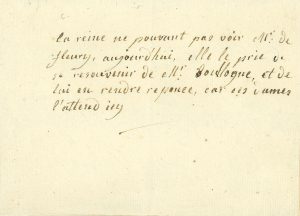 la reine ne pouvant pas voir Mr. de
fleury, aujourdhui, elle le prie de
se resouvenir de Mr. Boullogne, et de
lui en rendre reponce, car ces dames
l'attend icy